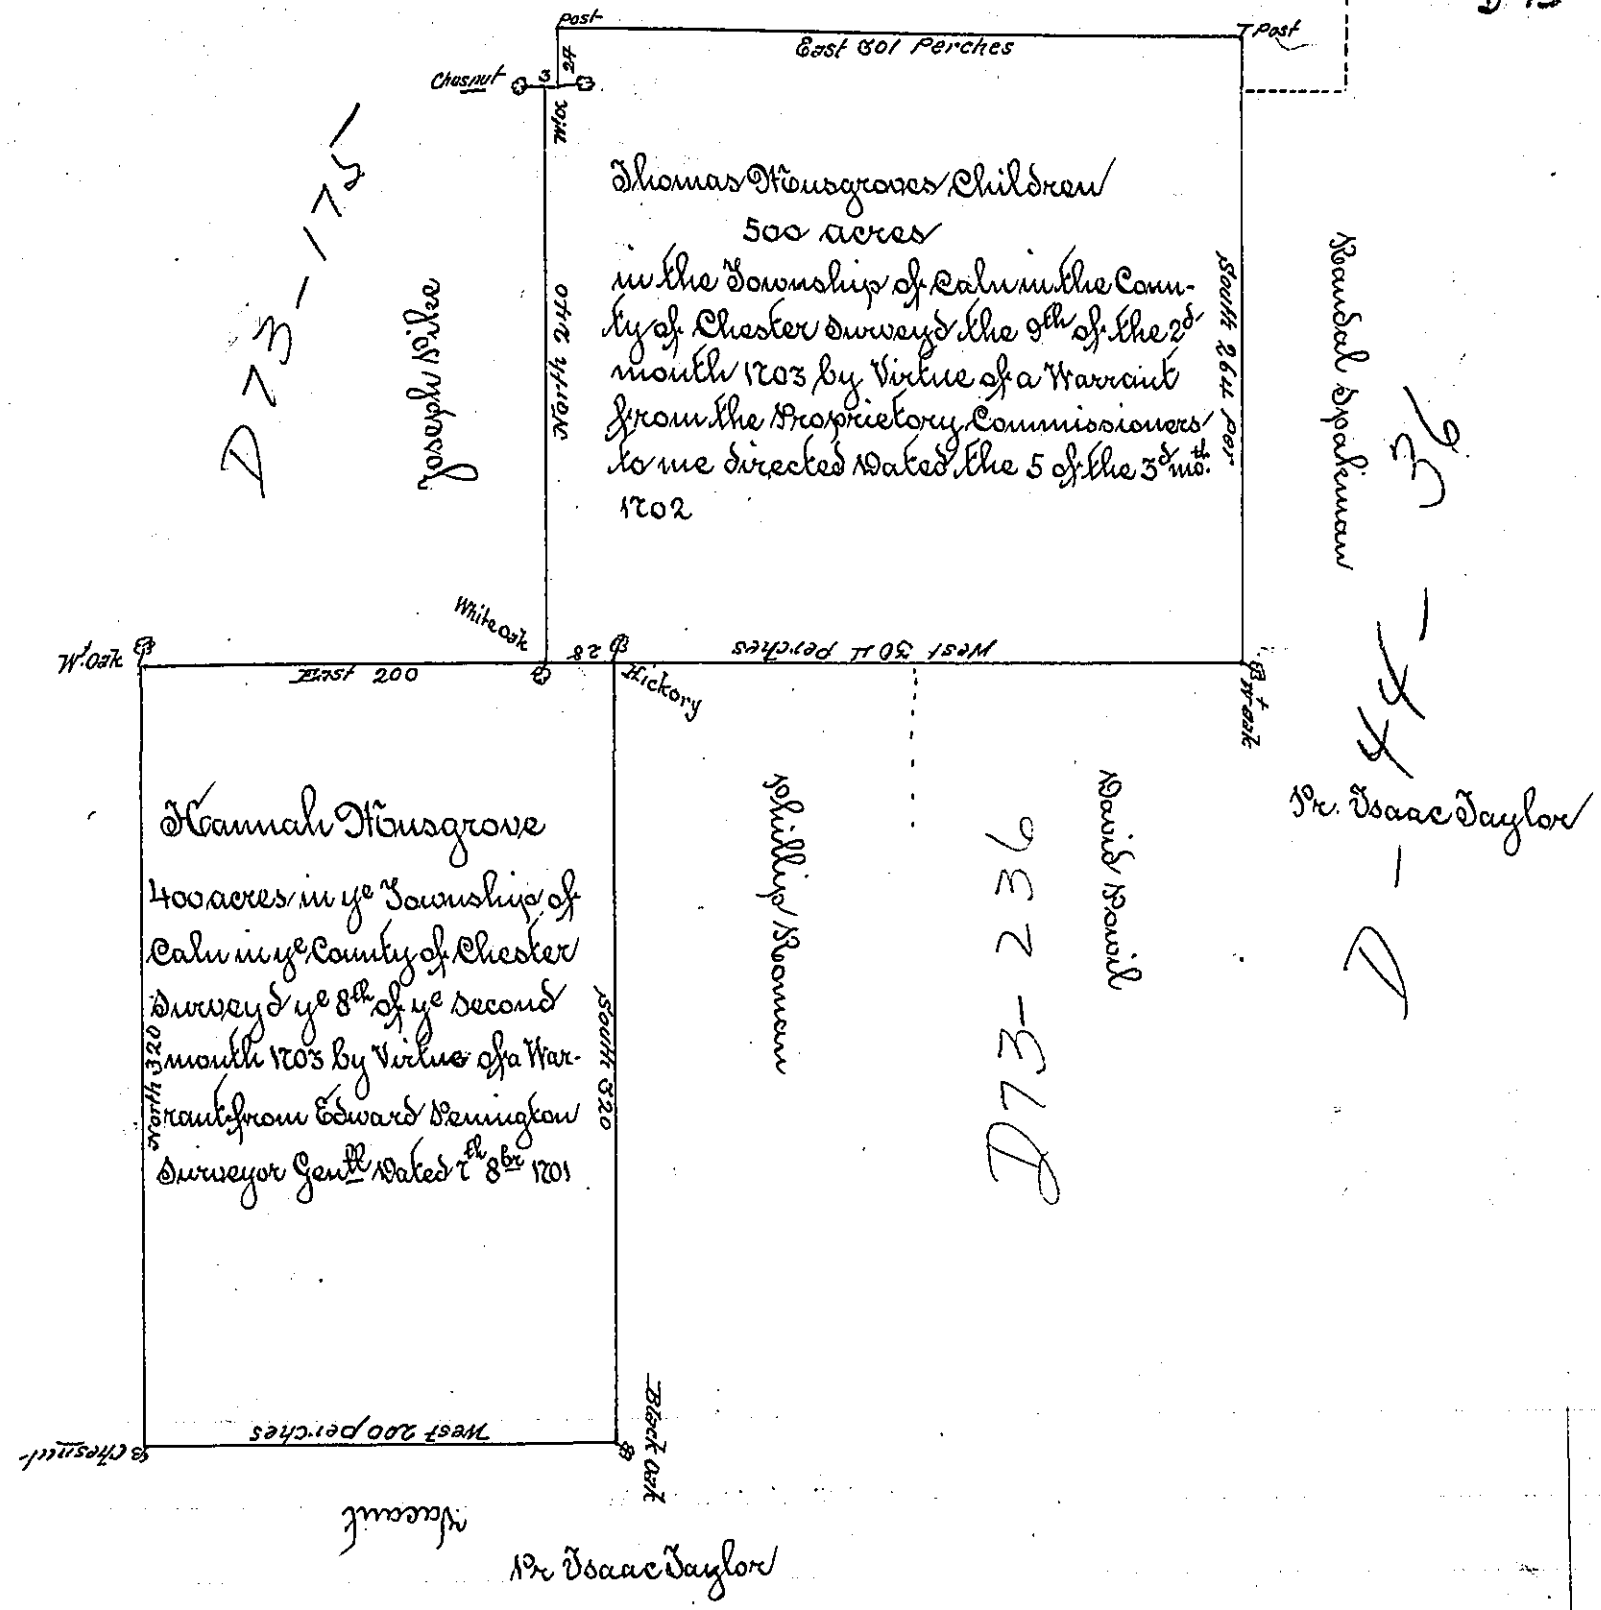 Post
T Post
East 301 Perches
Chesnut
3
24
West
North 240
South 264 Per
Thomas Musgroves Children
500 acres
in the Township of Caln in the Coun-
ty of Chester Surveyd the 9th of the 2d
month 1703 by Virtue of a Warrant
from the Proprietory Commissioners
to me directed Dated the 5 of the 3d mo.th
1702
D 73-175-
Joseph Pike
Randal Spakman
D-44-36
Pr. Isaac Taylor
White oak
Wt. Oak
East 200
28
Hickory
West 304 perches
Wt oak
Hannah Musgrove
400 acres in ye Township of
Caln in ye County of Chester
Surveyd ye 8th of ye second
month 1703 by Virtue of a War-
rant from Edward Penington
Surveyor Genll Dated 7th 8br 1701
North 320
South 320
Phillip Roman
D73-236
David Powil
West 200 perches
Chesnut
Black Oak
Vacant
Pr Isaac Taylor